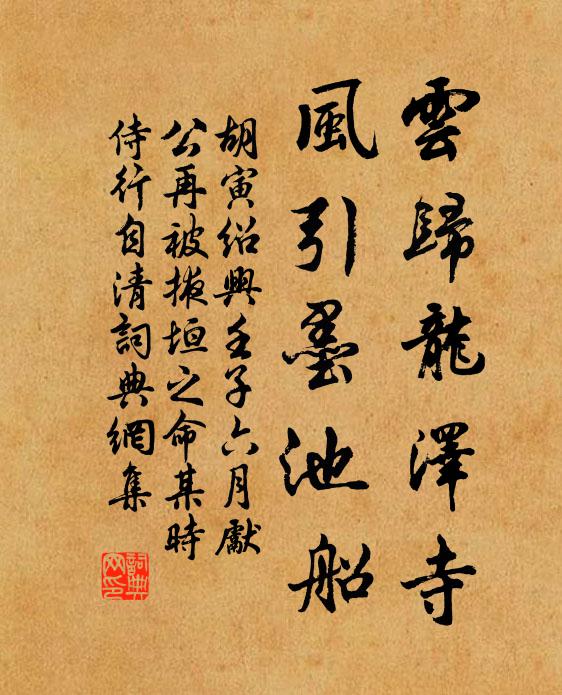 雲歸龍澤寺
風引墨池船
胡寅紹興壬子六月獻
公再被掖垣之命某時
侍行自清詞典網集
詞典網印